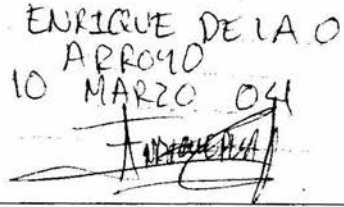 ENRIQUE DE LA O
ARROYO
10 MARZO 04